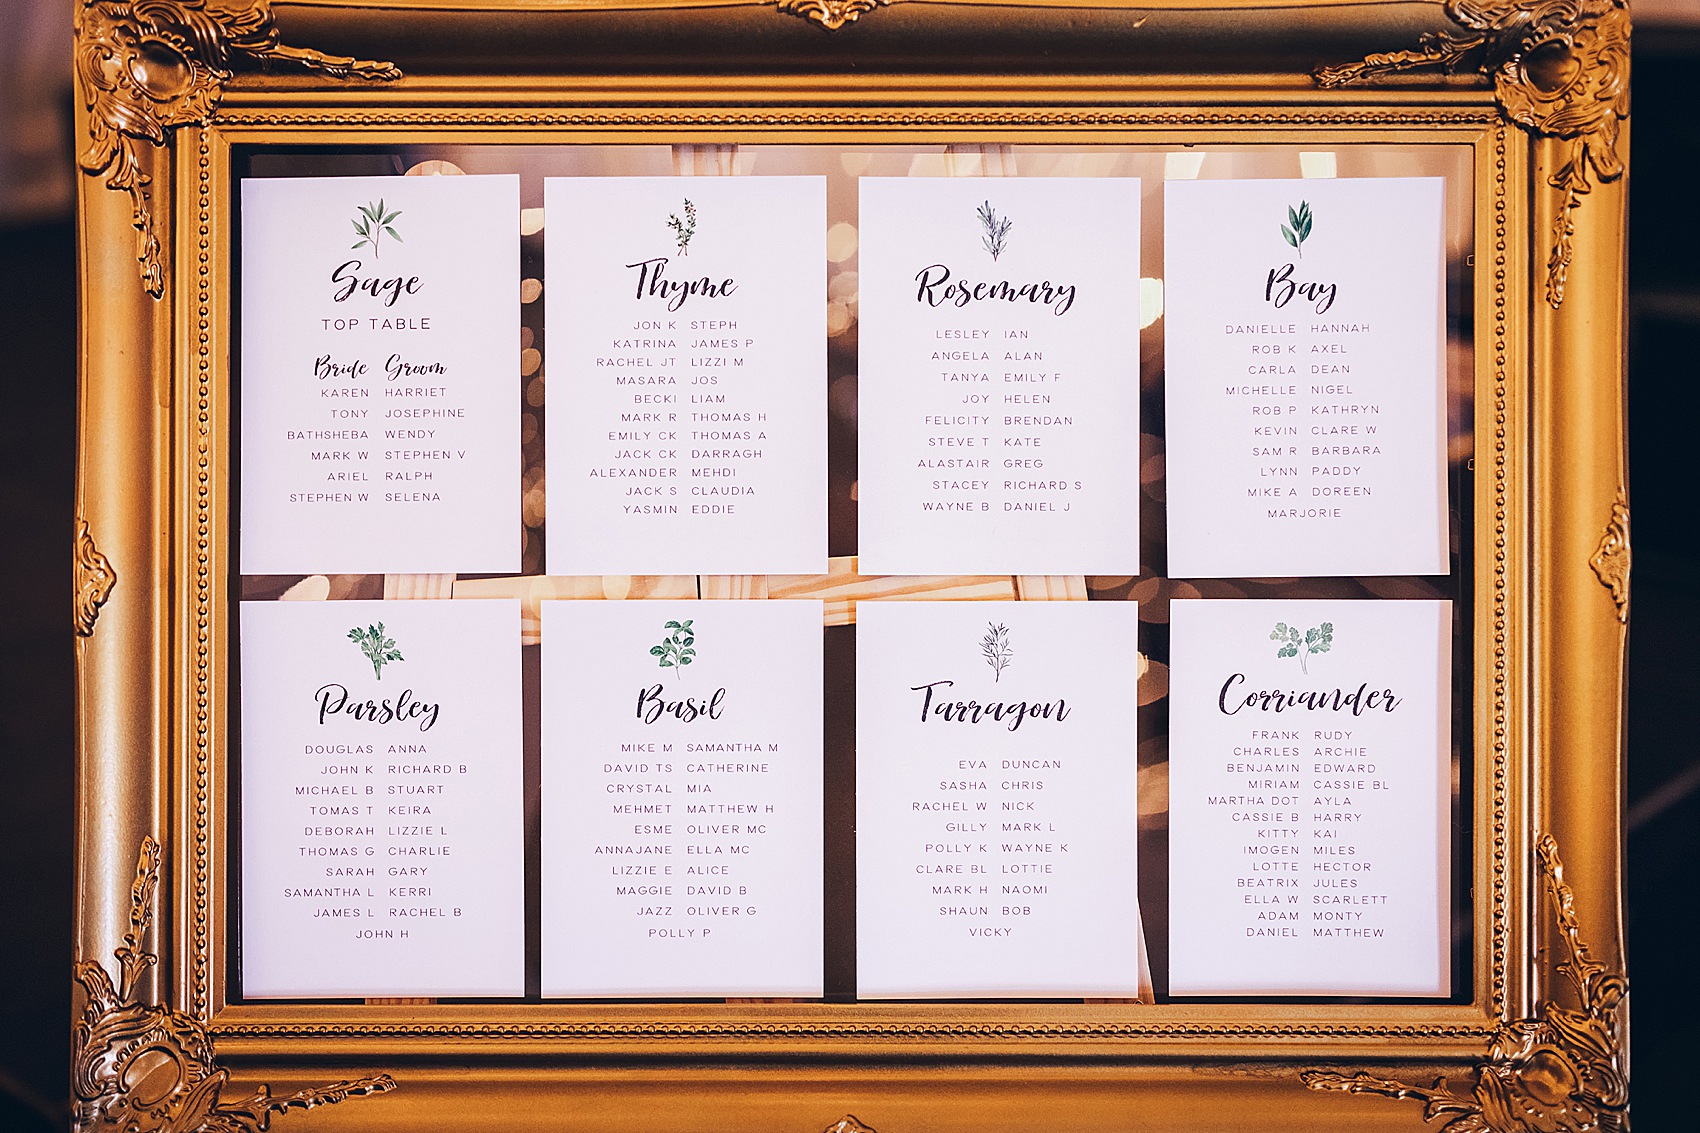 Sage
TOP TABLE
Bride Groom
KAREN HARRIET
TONY JOSEPHINE
BATHSHEBA WENDY
MARK W STEPHEN V
ARIEL RALPH
STEPHEN W SELENA
Thyme
JON K STEPH
KATRINA JAMES P
RACHEL JT LIZZI M
MASARA JOS
BECKI LIAM
MARK R THOMAS H
EMILY CK THOMAS A
JACK CK DARRAGH
ALEXANDER MEHDI
JACK S CLAUDIA
YASMIN EDDIE
Rosemary
LESLEY IAN
ANGELA ALAN
TANYA EMILY F
JOY HELEN
FELICITY BRENDAN
STEVE T KATE
ALASTAIR GREG
STACEY RICHARD S
WAYNE B DANIEL J
Bay
DANIELLE HANNAH
ROB K AXEL
CARLA DEAN
MICHELLE NIGEL
ROB P KATHRYN
KEVIN CLARE W
SAM R BARBARA
LYNN PADDY
MIKE A DOREEN
MARJORIE
Parsley
DOUGLAS ANNA
JOHN K RICHARD B
MICHAEL B STUART
TOMAS T KEIRA
DEBORAH LIZZIE L
THOMAS G CHARLIE
SARAH GARY
SAMANTHA L KERRI
JAMES L RACHEL B
JOHN H
Basil
MIKE M SAMANTHA M
DAVID TS CATHERINE
CRYSTAL MIA
MEHMET MATTHEW H
ESME OLIVER MC
ANNAJANE ELLA MC
LIZZIE E ALICE
MAGGIE DAVID B
JAZZ OLIVER G
POLLY P
Tarragon
EVA DUNCAN
SASHA CHRIS
RACHEL W NICK
GILLY MARK L
POLLY K WAYNE K
CLARE BL LOTTIE
MARK H NAOMI
SHAUN BOB
VICKY
Corriander
FRANK RUDY
CHARLES ARCHIE
BENJAMIN EDWARD
MIRIAM CASSIE BL
MARTHA DOT AYLA
CASSIE B HARRY
KITTY KAI
IMOGEN MILES
LOTTE HECTOR
BEATRIX JULES
ELLA W SCARLETT
ADAM MONTY
DANIEL MATTHEW